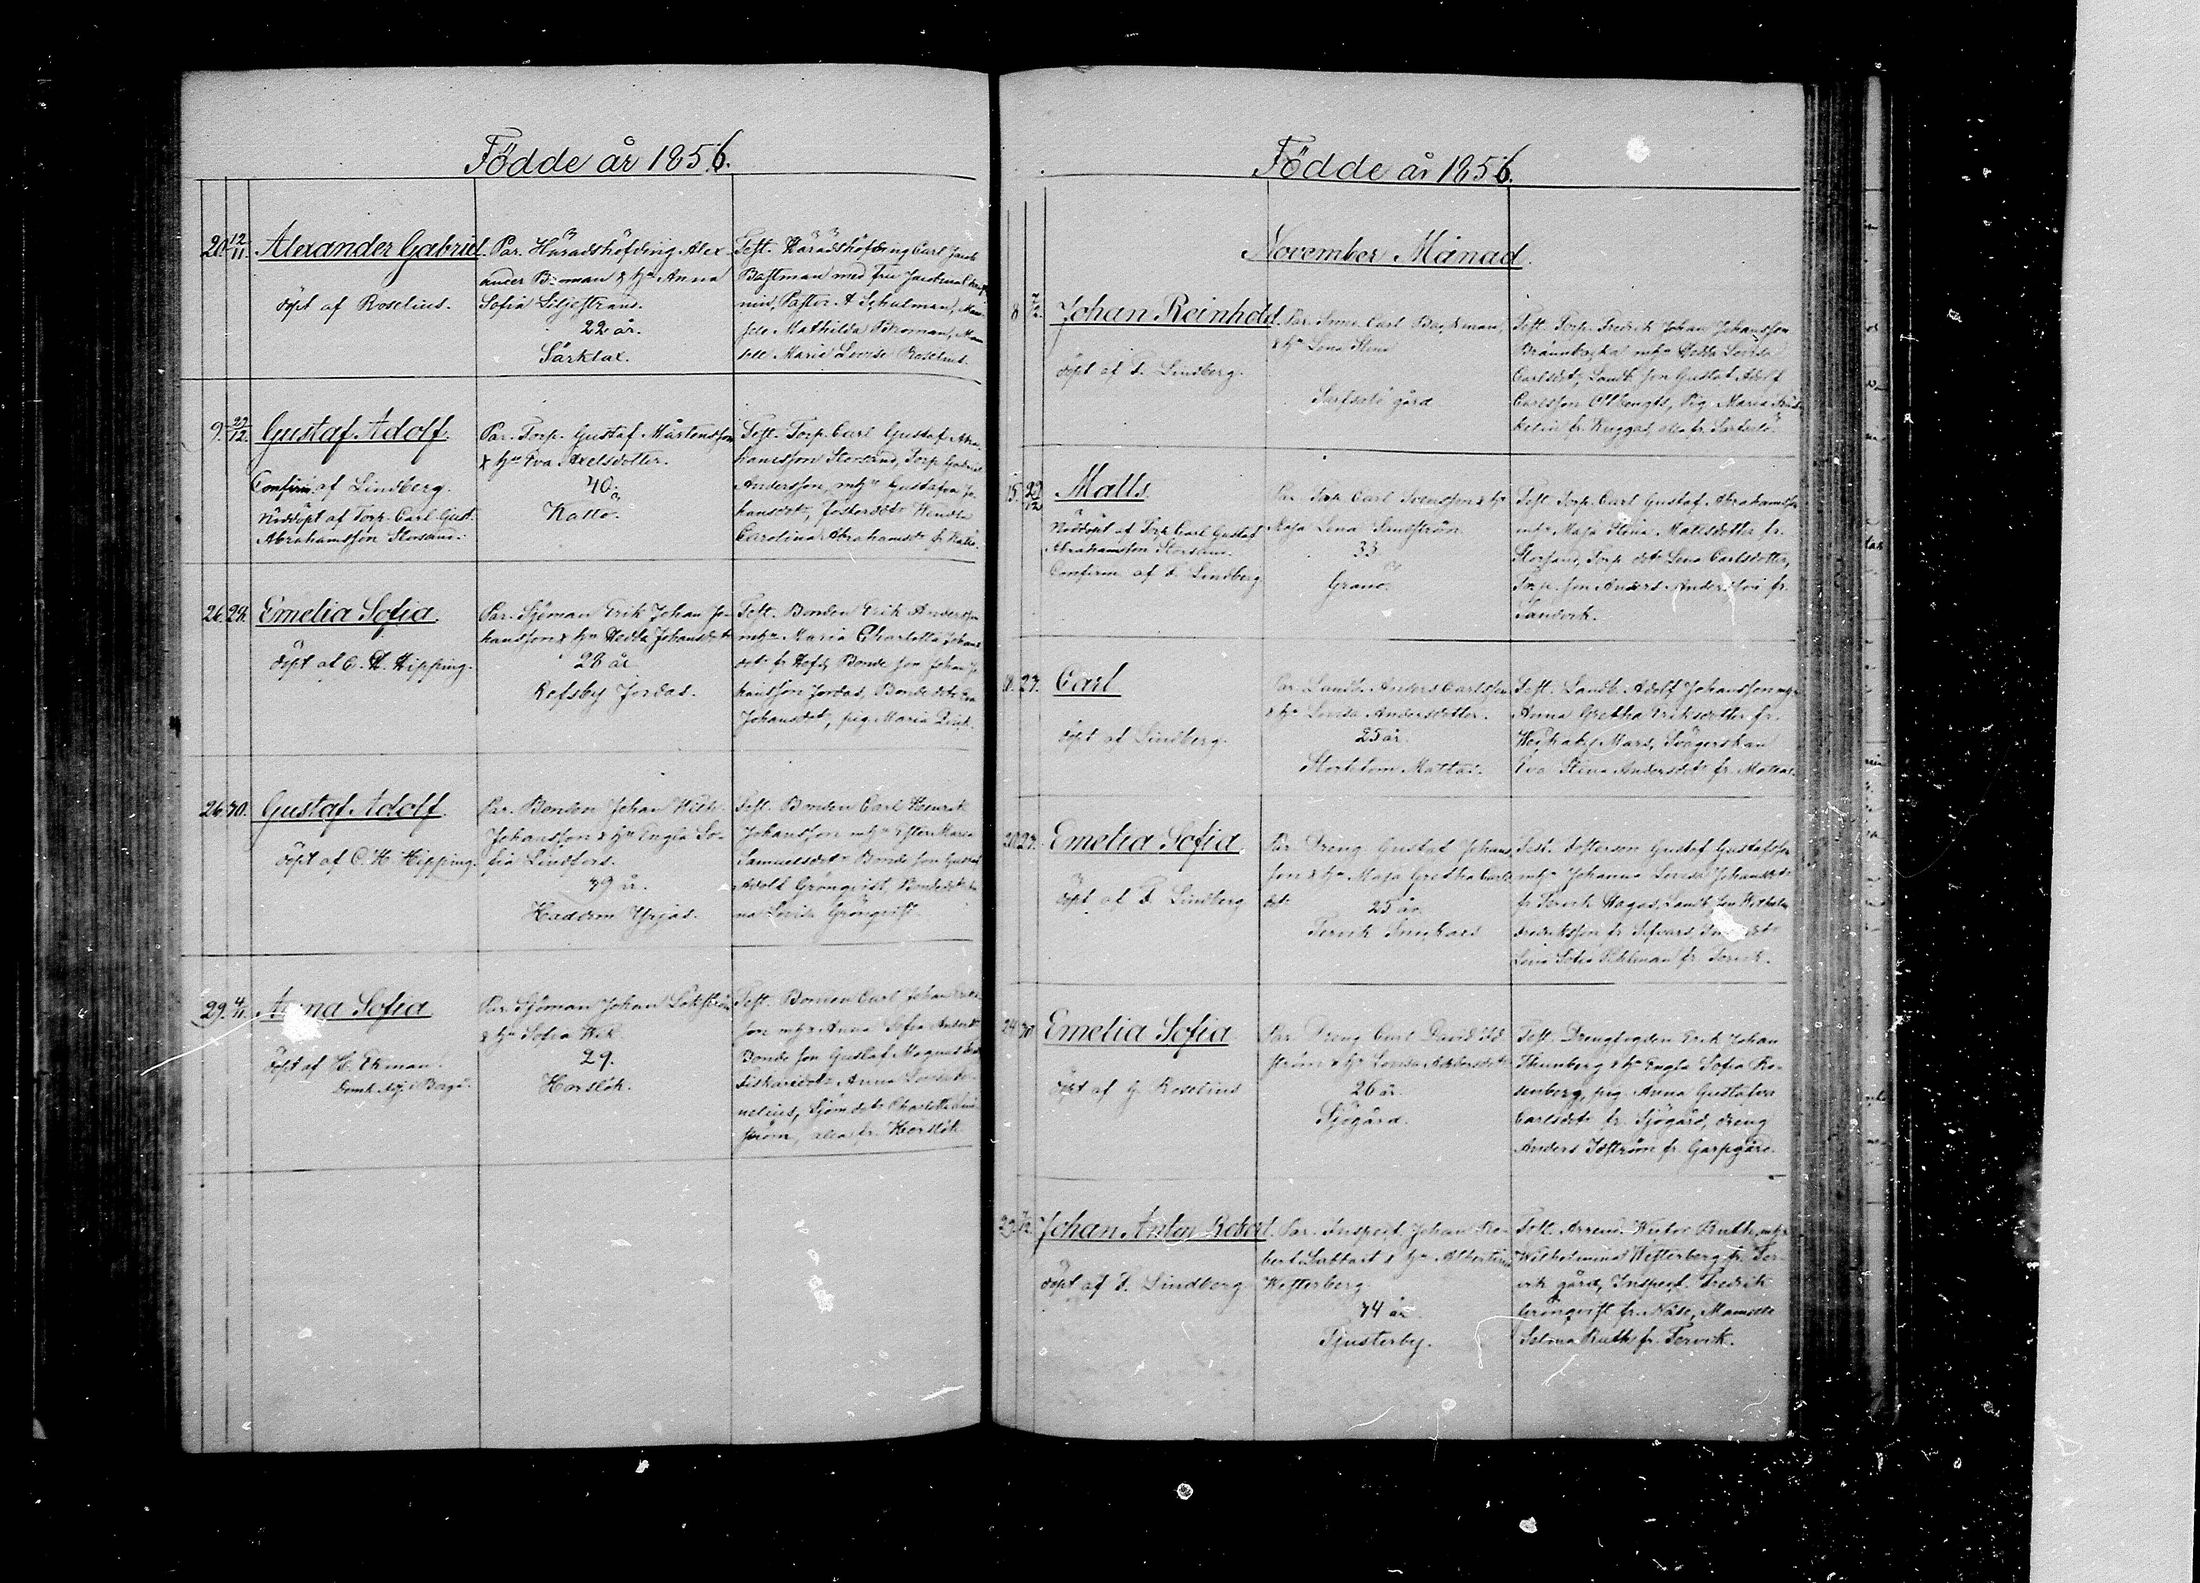 Födde år 1856.
20. 12/11. Alexander Gabriel.
döpt af Roselius.
Par. Häradshöfding Alex
ander B:oman & h:u Anna
Sofia Liljestrand.
22 år.
Särklax.
Test. Häradshöfding Carl Jacob
Bostman med Fru
Pastor A Schulman,
Mathilda Boman, Mam
sele Maria Lovise Roselius.
9. 27/12. Gustaf Adolf.
Confirm. af Lindberg.
Nöddöpt af Torp. Carl Gust.
Abrahamsson Storsand.
Par. Torp. Gustaf Mårtensson
& h:u Eva Axelsdotter.
40.
Kallö.
Test. Torp. Carl Gustaf Abra
hamsson Storsand, Torp. Gabriel
Andersson, mh:u Gustafva Jo
hansdot:
Carolina Abrahamsd: fr. Kallö.
26. 28. Emelia Sofia.
döpt af C. H. Hipping.
Par. Sjöman Erik Johan Jo-
hansson & h:u Hedda Johansdot:
28 år
Refsby Jordas.
Test. Bonden Erik Andersson
mh:u Maria Charlotta Johans
dot: fr. Bonde son Johan Jo
hansson Jordas, Bonde dot: Eva
Johansdot:, pig. Maria
26. 30. Gustaf Adolf.
döpt af C. H. Hipping.
Par. Bonden Johan Wilh.
Johansson & h:u Engla So-
fia Lindfors.
39 år.
Haddom Yrjas.
Test. Bonden Carl Henrik
Johansson mh:u Maria
Samuelsdot: Bonde son Gustaf
Adolf Grönqvist, Bondedot:
na Lovisa Grönqvist
29. 4/11. Anna Sofia
döpt af H. Ekman.
i Borgå.
Par. Sjöman Johan Löfström
& h:u Sofia Wik
29.
Horslök.
Test. Bonden Carl Johan
son mh:u Anna Sofia Andersd:
Bonde son Gustaf Magnus
Fiskaredot: Anna Lovisa
nelius, Sjöm. dot: Charlotta
ström, alla fr. Horslök
Födde år 1856.
November Månad.
8 7/12. Johan Reinhold.
döpt af F. Lindberg.
Par. Smed Carl Backman,
& h:u Lena Stina
Sarfsalö gård
Test. Torp. Fredrik Johan Johansson
Brännbacka mh:u Hedda Lovisa
Carlsdot:, Landb. son Gustaf Adolf
Carlsson Ollbengts, Pig. Maria
fr. Kuggas, alla fr. Sarfsalö.
15. 22/12 Matts.
Nöddöpt af Torp. Carl Gustaf
Abrahamsson Storsand.
Confirm af F. Lindberg
Par. Torp. Carl Svensson & h:u
Maja Lena Sandström
33
Granö.
Test. Torp. Carl Gustaf Abrahamsson
mh:u Maja Stina Mattsdotter fr.
Storsand, Torp. dot: Lena Carlsdotter,
Torp. son Anders Andersson fr.
Sandvik.
18. 27. Carl
döpt af Lindberg.
Par. Landb. Anders Carlsson
& h:u Lovisa Andersdotter.
25 år.
Storhtom Mattas.
Test. Landb. Adolf Johansson mh:u
Anna Gretha Eriksdotter fr.
Mars, Svägerskan
Eva Stina Andersdot: fr. Mattas.
20. 27. Emelia Sofia
döpt af F. Lindberg
Par. Dreng Gustaf Johans
son & h:u Maja Gretha Carls
dot:
25 år.
Tervik Smickars
Test. Gustaf Gustafsson
mh:u Johanna Lovisa Johansdot:
fr. Tervik Hagas, Landb. son Wilhelm
Fredriksson fr. Sefvars,
Lena Sofia Pihlman fr. Tervik.
24. 30 Emelia Sofia
döpt af G. Roselius
Par. Dreng Carl David Id
ström & h:u Lovisa Andersdot:
26 år.
Sjögård.
Test. Drengfogden Erik Johan
Thunberg & h:u Engla Sofia Ro-
senberg, pig. Anna Gustafva
Carlsdot: fr. Sjögård, dreng
Anders Idström fr. Garpgård.
29. 7/12. Johan Anton Robert.
döpt af F. Lindberg
Par. Inspect. Johan Ro-
bert Lubbart & h:u Albertina
Westerberg
34 år
Tjusterby.
Test. Arrend. Victor Ruth, mh:u
Wilhelmina Westerberg fr. Ter-
vik gård, Inspect. Fredrik
Grönqvist fr. Näse, Mamsell
Selma Ruth fr. Tervik.